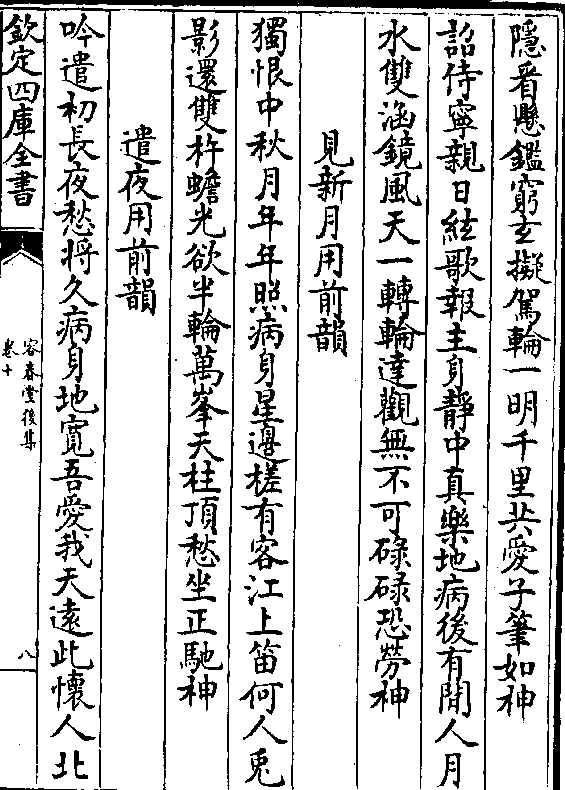 隱看懸鑑窮玄擬駕輪一明千里共愛子筆如神
詔侍寧親日絃歌報主身靜中真樂地病後有閒人月
水雙涵鏡風天一轉輪達觀無不可碌碌恐勞神
見新月用前韻
獨恨中秋月年年照病身星邉槎有客江上笛何人兎
影還雙杵蟾光欲半輪萬峯天柱頂愁坐正馳神
遣夜用前韻
吟遣初長夜愁將久病身地寛吾愛我天遠此懷人北
欽定四庫全書
容春堂後集
卷十
八